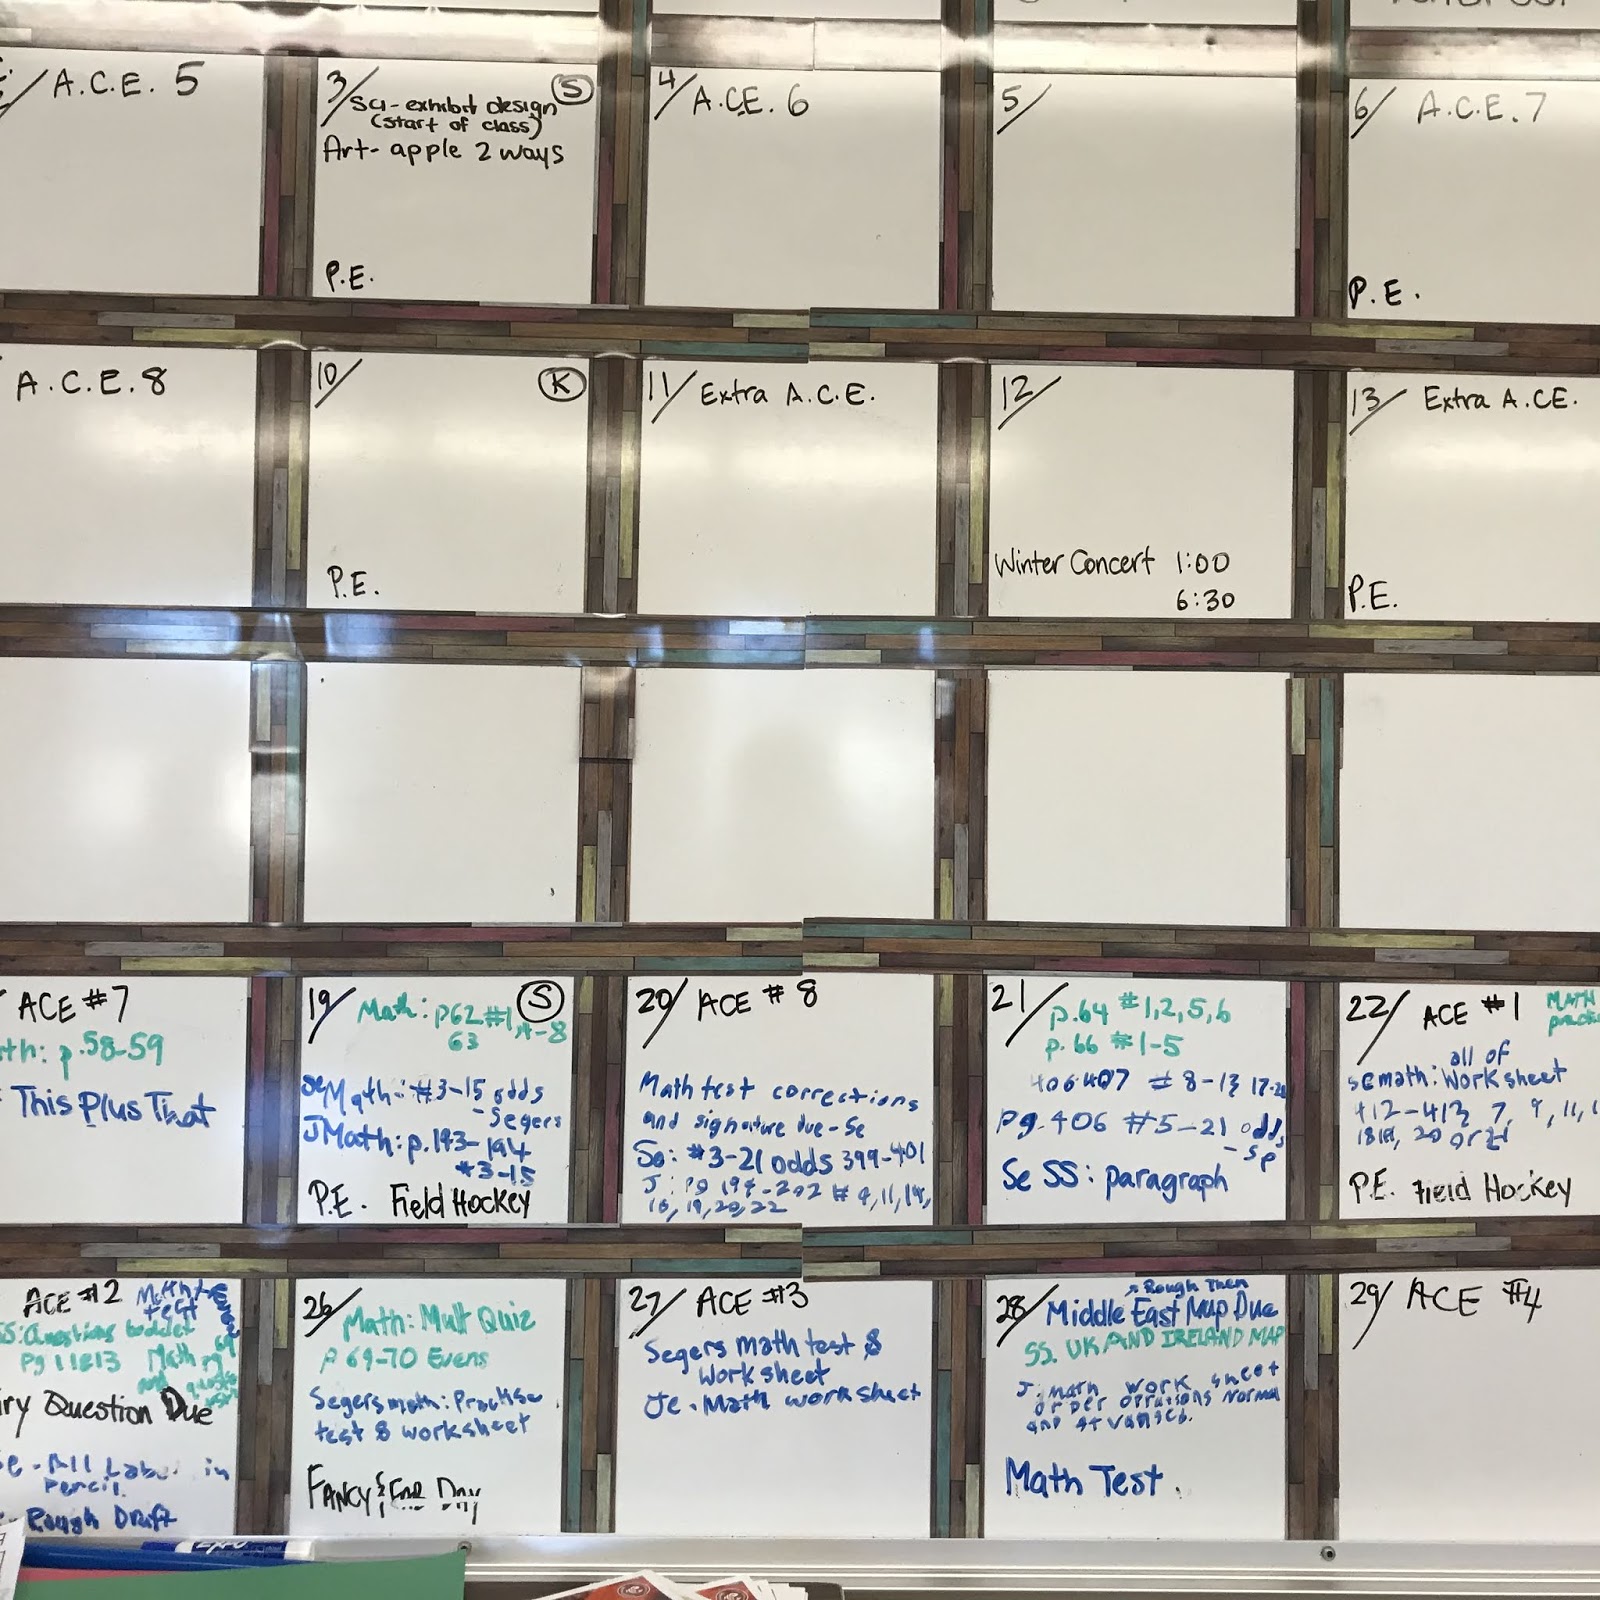 A.C.E. 5
3/ S
Sci-exhibit design
(start of class)
Art- apple 2 ways
P.E.
4/ A.C.E. 6
5/
6/ A.C.E. 7
P.E.
A.C.E. 8
10/ K
P.E.
11/ Extra A.C.E.
12/
Winter Concert 1:00
6:30
13/ Extra A.C.E.
P.E.
ACE #7
th: p.58-59
This Plus That
19/ S
Math: p62 #1, 4-8
63
Se Math: #3-15 odds
- Segers
J Math: p.193-194
#3-15
P.E. Field Hockey
20/ ACE # 8
Math test corrections
and signature due - Se
Se: #3-21 odds 399-401
J: pg 199-202 # 9, 11, 14,
16, 19, 20, 22
21/ p.64 #1,2,5,6
p. 66 #1-5
406 407 # 8-13 17-20
pg. 406 #5-21 odds
- Sp
Se SS: paragraph
22/ ACE #1 MATH
all of
se math: Worksheet
412-413 7, 9, 11,
20 or 21
P.E. Field Hockey
ACE #2 Math
test
SS: Questions booklet
Pg 11 & 13 Math pg
and
iry Question Due
e - All Labels in
Pencil.
Rough Draft
26/ Math: Mult Quiz
p 69-70 Evens
Segers math: Practise
test & worksheet
FANCY & Day
27/ ACE #3
Segers math test &
Worksheet
Je. Math worksheet
28/ Rough Then
Middle East Map Due
SS. UK AND IRELAND MAP
J: math work sheet
order normal
and
Math Test.
29/ ACE #4
EXPO